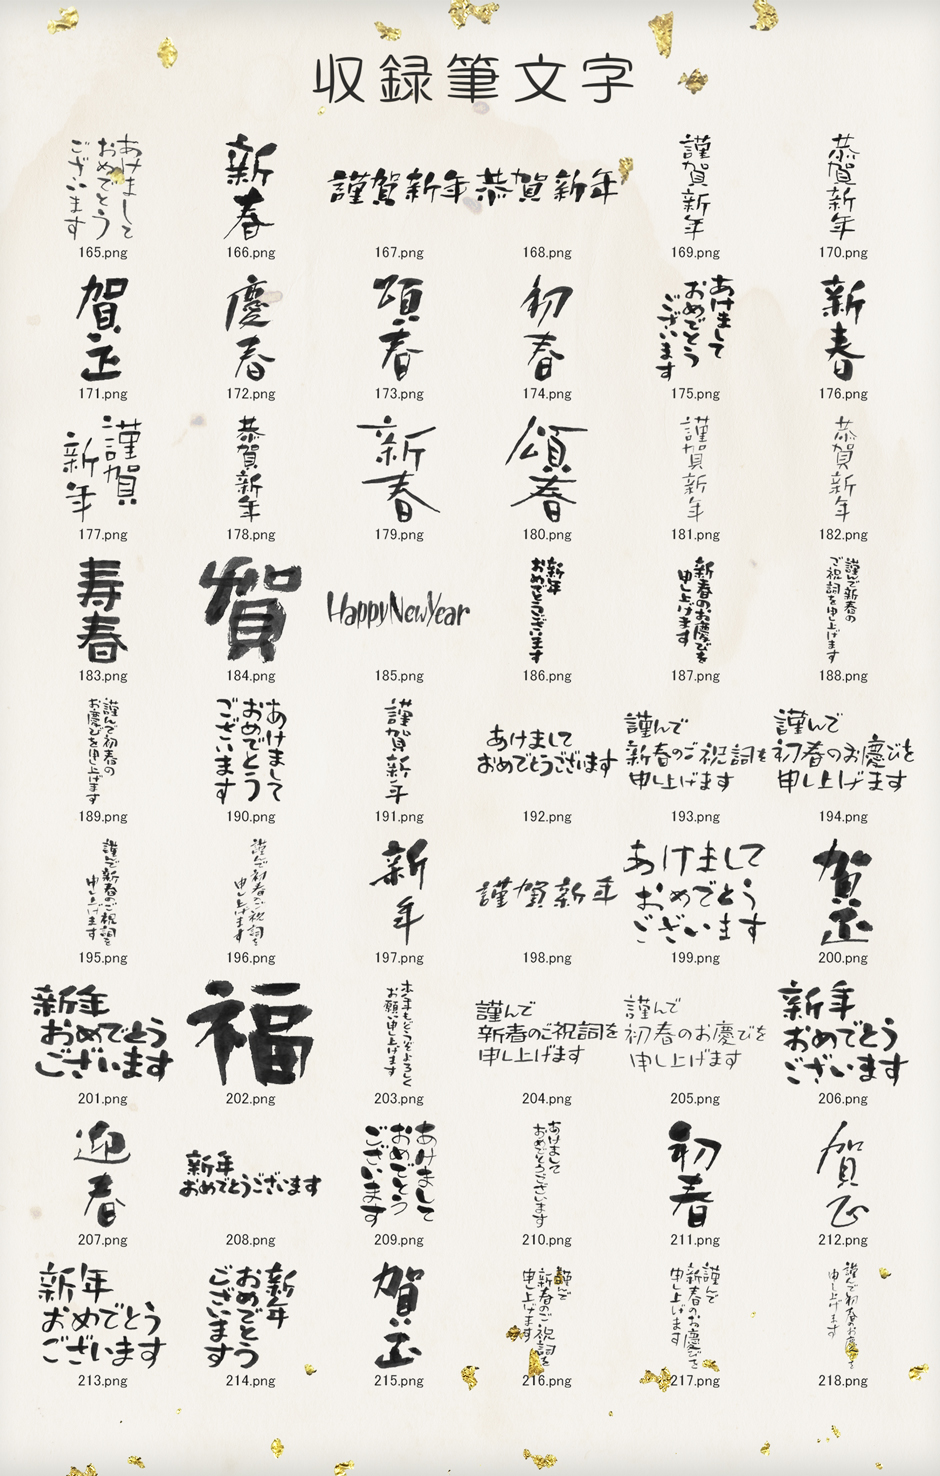 収録筆文字
あけまして
おめでとう
ございます
165.png
新春
166.png
謹賀新年
167.png
恭賀新年
168.png
謹賀新年
169.png
恭賀新年
170.png
賀正
171.png
慶春
172.png
頌春
173.png
初春
174.png
あけまして
おめでとう
ございます
175.png
新春
176.png
謹賀
新年
177.png
恭賀新年
178.png
新春
179.png
頌春
180.png
謹賀新年
181.png
恭賀新年
182.png
寿春
183.png
賀
184.png
HappyNewYear
185.png
新年
おめでとうございます
186.png
新春のお慶びを
申し上げます
187.png
謹んで新春の
ご祝詞を申し上げます
188.png
謹んで初春の
お慶びを申し上げます
189.png
あけまして
おめでとう
ございます
190.png
謹賀新年
191.png
あけまして
おめでとうございます
192.png
謹んで
新春のご祝詞を
申し上げます
193.png
謹んで
初春のお慶びを
申し上げます
194.png
謹んで新春のご祝詞を
申し上げます
195.png
謹んで初春のご祝詞を
申し上げます
196.png
新年
197.png
謹賀新年
198.png
あけまして
おめでとう
ございます
199.png
賀正
200.png
新年
おめでとう
ございます
201.png
福
202.png
本年もどうぞよろしく
お願い申し上げます
203.png
謹んで
新春のご祝詞を
申し上げます
204.png
謹んで
初春のお慶びを
申し上げます
205.png
新年
おめでとう
ございます
206.png
迎春
207.png
新年
おめでとうございます
208.png
あけまして
おめでとう
ございます
209.png
あけまして
おめでとうございます
210.png
初春
211.png
賀正
212.png
新年
おめでとう
ございます
213.png
新年
おめでとう
ございます
214.png
賀正
215.png
謹んで
新春のご祝詞を
申し上げます
216.png
謹んで
新春のお慶びを
申し上げます
217.png
謹んで初春のお慶びを
申し上げます
218.png